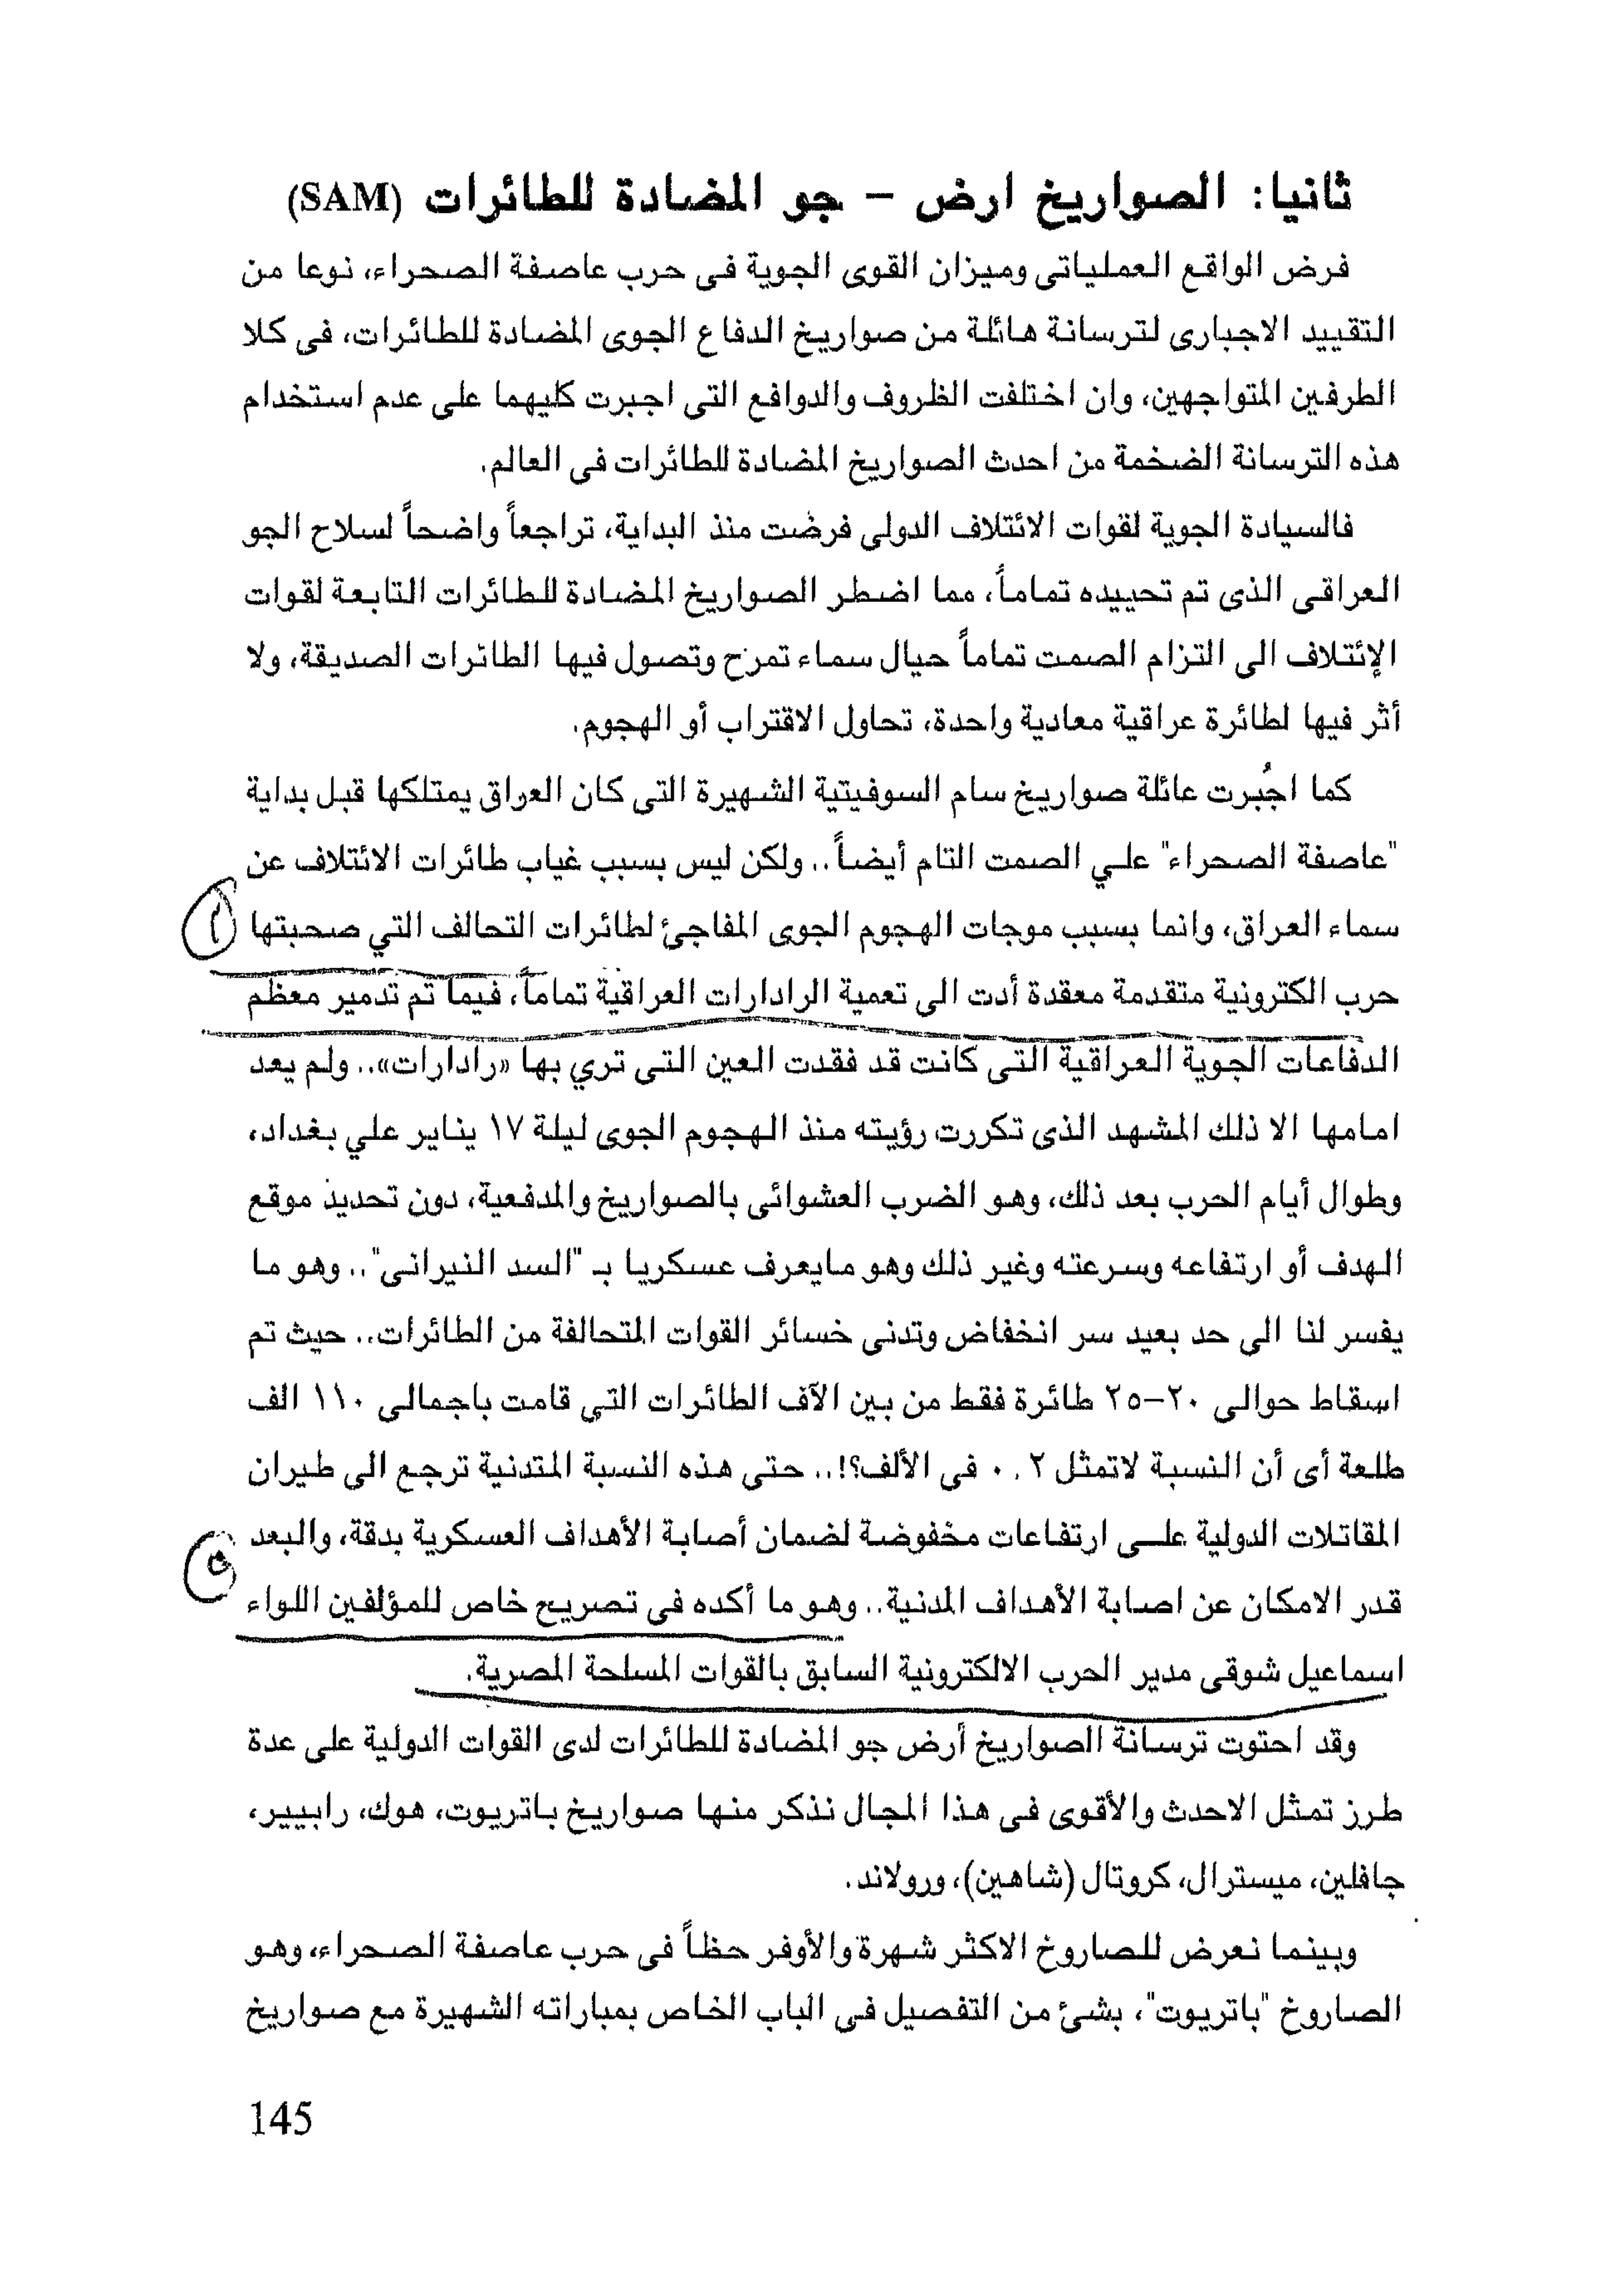 ثانيا: الصواريخ ارض - جو المضادة للطائرات (SAM)
فرض الواقع العملياتى وميزان القوى الجوية فى حرب عاصفة الصحراء، نوعا من
التقييد الاجبارى لترسانة هائلة من صواريخ الدفاع الجوى المضادة للطائرات، فى كلا
الطرفين المتواجهين، وان اختلفت الظروف والدوافع التى اجبرت كليهما على عدم استخدام
هذه الترسانة الضخمة من احدث الصواريخ المضادة للطائرات فى العالم.
فالسيادة الجوية لقوات الائتلاف الدولى فرضت منذ البداية، تراجعاً واضحاً لسلاح الجو
العراقى الذى تم تحييده تماماً، مما اضطر الصواريخ المضادة للطائرات التابعة لقوات
الإئتلاف الى التزام الصمت تماماً حيال سماء تمرح وتصول فيها الطائرات الصديقة، ولا
أثر فيها لطائرة عراقية معادية واحدة، تحاول الاقتراب أو الهجوم.
كما اجُبرت عائلة صواريخ سام السوفيتية الشهيرة التى كان العراق يمتلكها قبل بداية
"عاصفة الصحراء" علي الصمت التام أيضاً.. ولكن ليس بسبب غياب طائرات الائتلاف عن
سماء العراق، وانما بسبب موجات الهجوم الجوى المفاجئ لطائرات التحالف التي صحبتها
حرب الكترونية متقدمة معقدة أدت الى تعمية الرادارات العراقية تماماً، فيما تم تدمير معظم
الدفاعات الجوية العراقية التى كانت قد فقدت العين التى تري بها «رادارات».. ولم يعد
امامها الا ذلك المشهد الذى تكررت رؤيته منذ الهجوم الجوى ليلة ١٧ يناير علي بغداد،
وطوال أيام الحرب بعد ذلك، وهو الضرب العشوائى بالصواريخ والمدفعية، دون تحديد موقع
الهدف أو ارتفاعه وسرعته وغير ذلك وهو مايعرف عسكريا بـ "السد النيرانى".. وهو ما
يفسر لنا الى حد بعيد سر انخفاض وتدنى خسائر القوات المتحالفة من الطائرات.. حيث تم
اسقاط حوالى ٢٠-٢٥ طائرة فقط من بين الآف الطائرات التي قامت باجمالى ١١٠ الف
طلعة أى أن النسبة لاتمثل ٠,٢ فى الألف؟!.. حتى هذه النسبة المتدنية ترجع الى طيران
المقاتلات الدولية علــى ارتفاعات مخفوضة لضمان أصابة الأهداف العسكرية بدقة، والبعد
قدر الامكان عن اصابة الأهداف المدنية.. وهو ما أكده فى تصريح خاص للمؤلفين اللواء
اسماعيل شوقى مدير الحرب الالكترونية السابق بالقوات المسلحة المصرية.
وقد احتوت ترسانة الصواريخ أرض جو المضادة للطائرات لدى القوات الدولية على عدة
طرز تمثل الاحدث والأقوى فى هذا المجال نذكر منها صواريخ باتريوت، هوك، رابيير،
جافلين، ميسترال، كروتال (شاهين)، ورولاند.
وبينما نعرض للصاروخ الاكثر شهرة والأوفر حظاً فى حرب عاصفة الصحراء، وهو
الصاروخ "باتريوت"، بشئ من التفصيل فى الباب الخاص بمباراته الشهيرة مع صواريخ
145